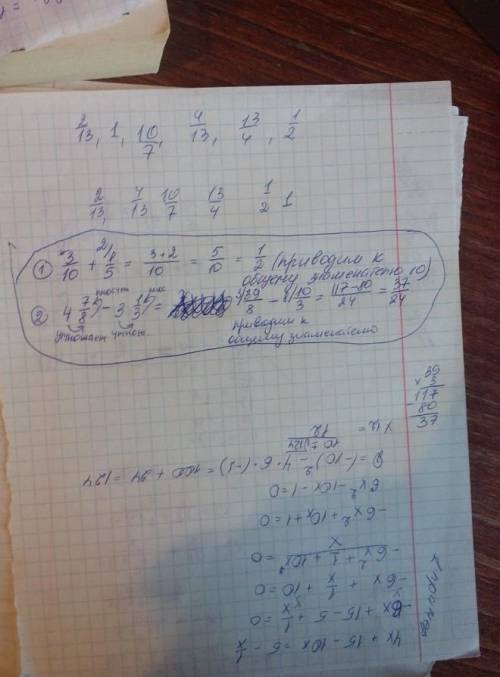 2/13, 1, 10/7, 4/13, 13/4, 1/2
2/13, 4/13 10/7 13/4 1/2 1
① 3/10 + 1/5 = 3+2/10 = 5/10 = 1/2 (приводим к
общему знаменателю 10)
② 4 7/8 - 3 1/3 = 39/8 - 10/3 = 117-80/24 = 37/24
умножаем
приводим к
общему знаменателю
39
×3
117
-80
37
4x + 15 - 10x = 5 - 1/x
-6x + 15 - 5 + 1/x = 0
-6x + 1/x + 10 = 0
-6x² + 1 + 10x / x = 0
-6x² + 10x + 1 = 0
6x² - 10x - 1 = 0
D = (-10)² - 4·6·(-1) = 100 + 24 = 124
x½ = 10 ± √124 / 12